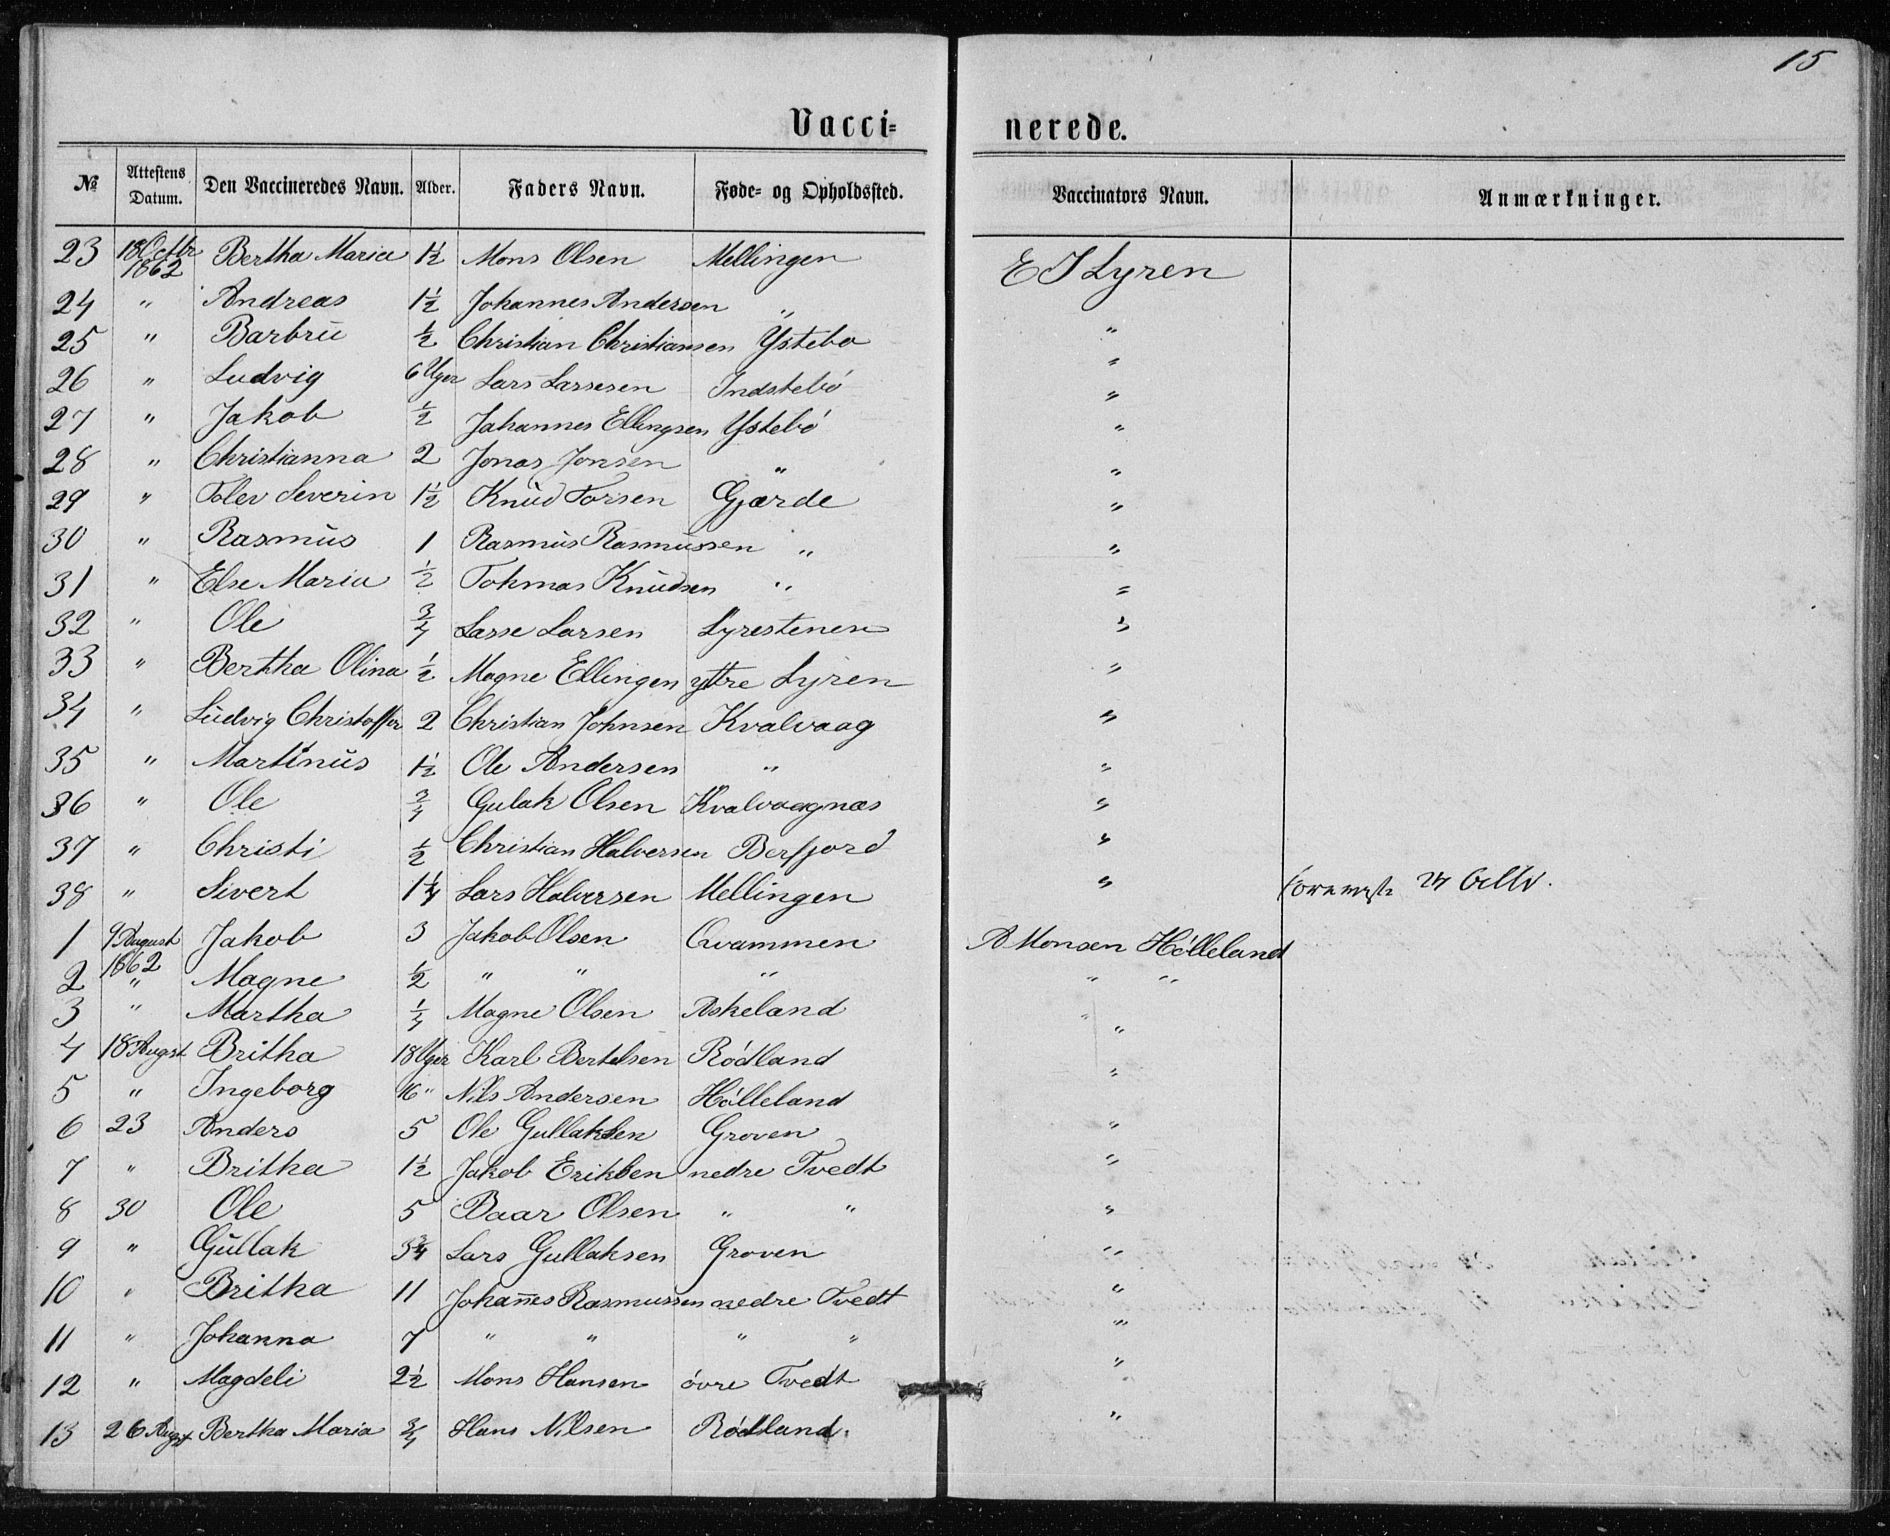 15
Vacci= nerede.
No Attestens Datum. Den Vaccineredes Navn. Alder. Faders Navn. Føde= og Opholdssted. Vaccinators Navn. Anmærkninger.
23 18 Octbr 1862 Bertha Maria 1½ Mons Olsen Mellingen E I Lyren
24 " Andreas 1½ Johannes Andersen " "
25 " Barbru ½ Christian Christiansen Ystebo "
26 " Ludvig 6 Uger Lars Larsesen Indstebö "
27 " Jakob ½ Johannes Ellingsen Ystebö "
28 " Christianna 2 Jonas Jonsen " "
29 " Tolev Severin 1½ Knud Torsen Gjærde "
30 " Rasmus 1 Rasmus Rasmussen " "
31 " Else Maria ½ Tohmas Knudsen " "
32 " Ole ¾ Lasse Larsen Lyrestenen "
33 " Bertha Olina ½ Magne Ellingen yttre Lyren "
34 " Ludvig Christoffer 2 Christian Johnsen Kvalvaag "
35 " Martinus 1½ Ole Andersen " "
36 " Ole ¾ Gulak Olsen Kvalvaagnæs "
37 " Christi ½ Christian Halversen Berfjord "
38 " Sivert 1¼ Lars Halversen Mellingen "
1 9 August 1862 Jakob 3 Jakob Olsen Qvammen A Monsen Hólleland
2 " Magne ½ " " " " "
3 " Martha ¼ Magne Olsen Askeland " "
4 18 Augst Britha 18 Uger Karl Bertelsen Ródland "
5 " Ingeborg 16 " Nils Andersen Hólleland "
6 23 Anders 5 Ole Gullaksen Groven "
7 " Britha 1½ Jakob Eriksen nedre Tvedt "
8 30 Ole 5 Baar Olsen " " "
9 " Gullak 3¾ Lars Gullaksen Groven "
10 " Britha 11 Johannes Rasmussen nedre Tvedt "
11 " Johanna 7 " " " " "
12 " Magdeli 2½ Mons Hansen óvre Tvedt "
13 26 Augst Bertha Maria ¾ Hans Nilsen Ródland. "